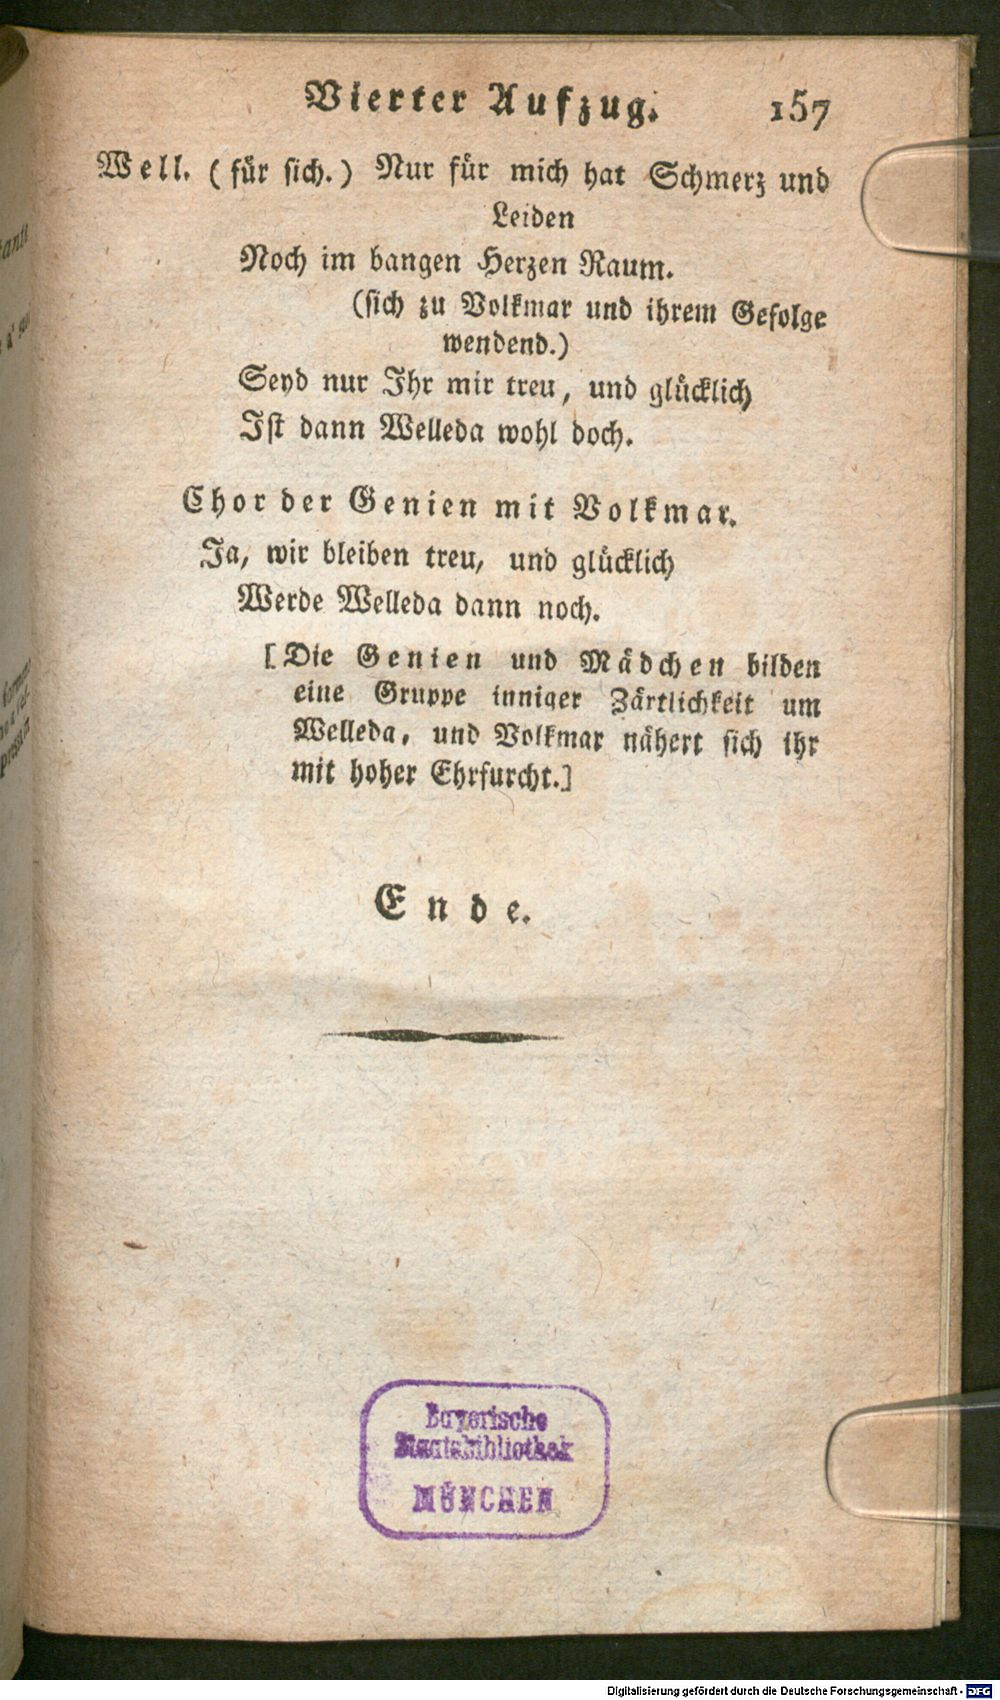 Vierter Aufzug. 157
Well. (für sich.) Nur für mich hat Schmerz und
Leiden
Noch im bangen Herzen Raum.
(sich zu Volkmar und ihrem Gefolge
wendend.)
Seyd nur Ihr mir treu, und glücklich
Ist dann Welleda wohl doch.
Chor der Genien mit Volkmar.
Ja, wir bleiben treu, und glücklich
Werde Welleda dann noch.
[Die Genien und Mädchen bilden
eine Gruppe inniger Zärtlichkeit um
Welleda, und Volkmar nähert sich ihr
mit hoher Ehrfurcht.]
Ende.
Bayerische
Staatsbibliothek
MÜNCHEN
Digitalisierung gefördert durch die Deutsche Forschungsgemeinschaft - DFG